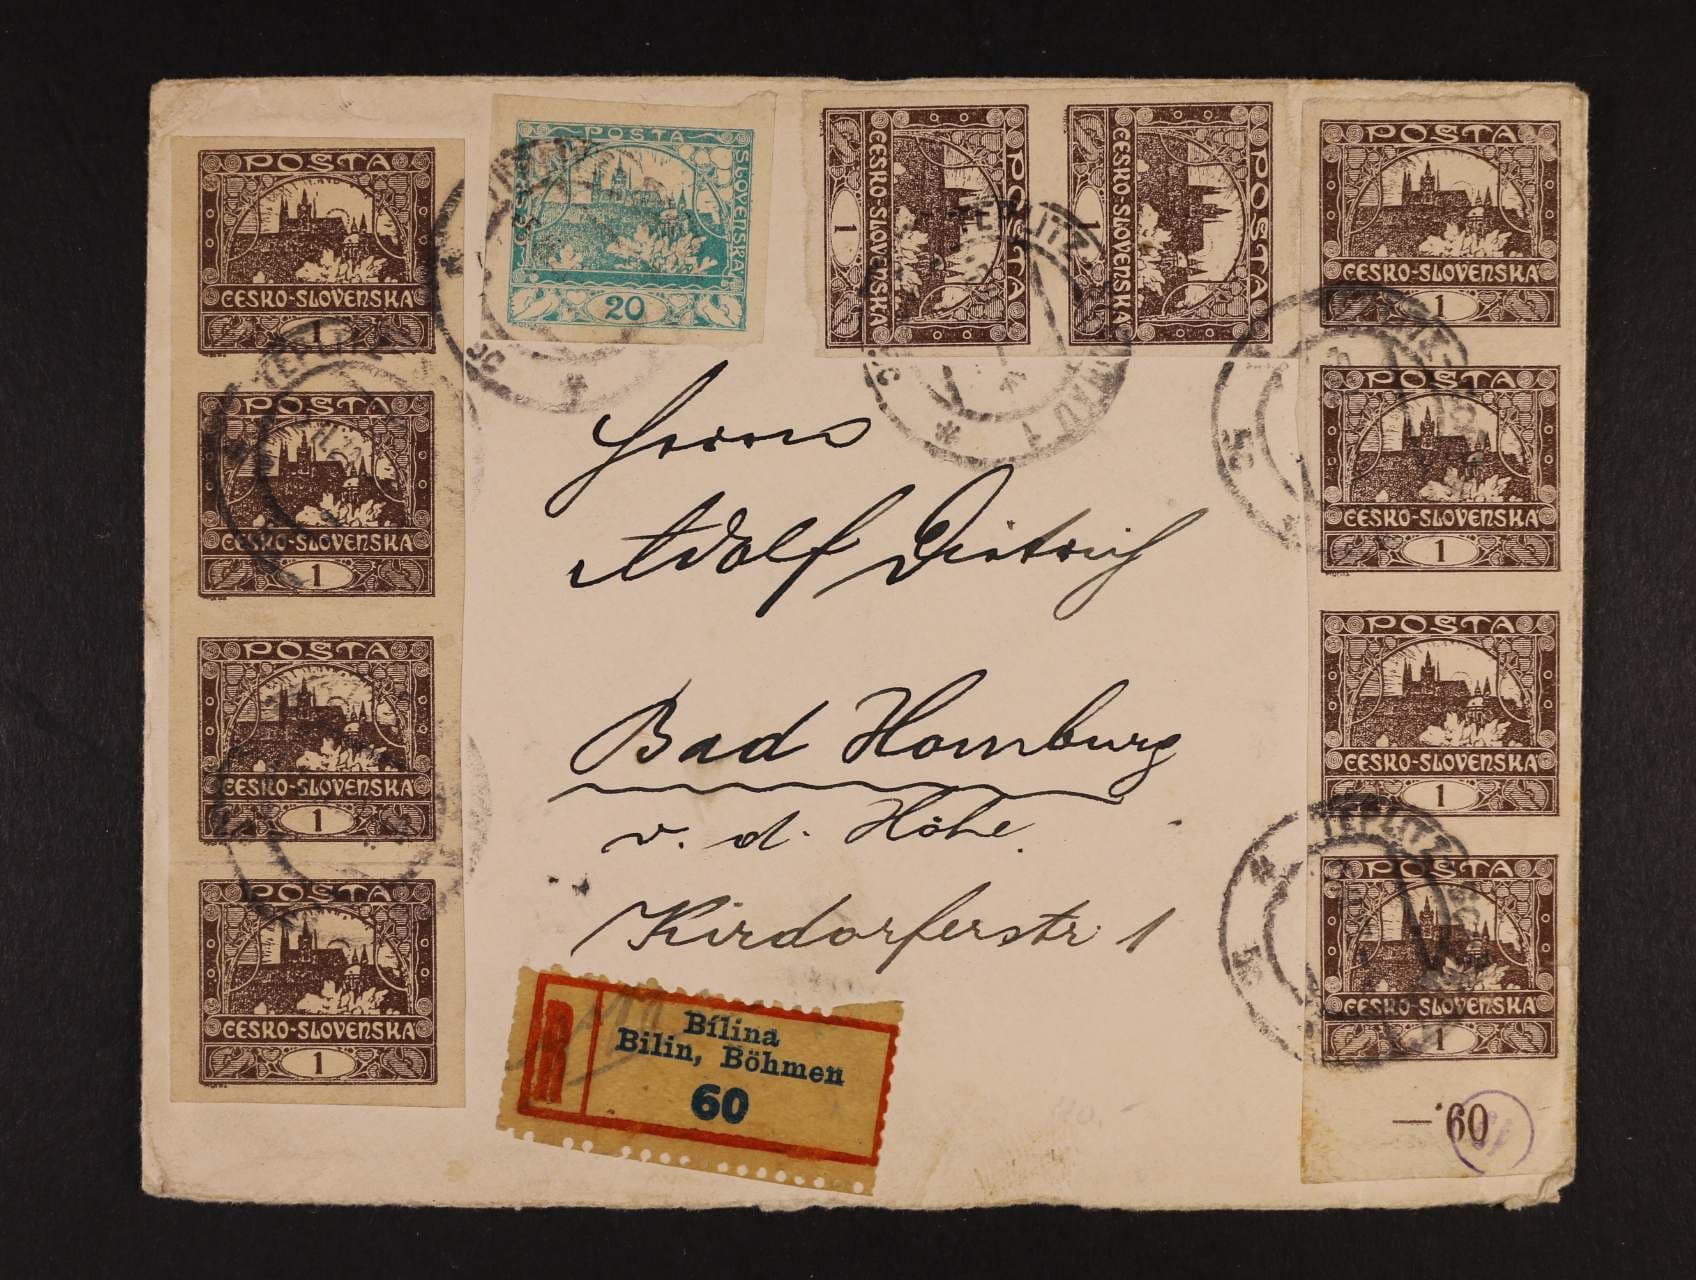 POSTA
ČESKO-SLOVENSKA
1
POSTA
ČESKO-SLOVENSKA
1
POSTA
ČESKO-SLOVENSKA
1
POSTA
ČESKO-SLOVENSKA
1
POSTA
SLOVENSKA
20
POSTA
ČESKO-SLOVENSKA
1
POSTA
ČESKO-SLOVENSKA
1
POSTA
ČESKO-SLOVENSKA
1
POSTA
ČESKO-SLOVENSKA
1
POSTA
ČESKO-SLOVENSKA
1
POSTA
ČESKO-SLOVENSKA
1
TEPLITZ
TEPLITZ
TEPLITZ
Herrn
Adolf Dietrich
Bad Homburg
v. d. Höhe.
Kirdorferstr 1
R
Bílina
Bilin, Böhmen
60
—·60